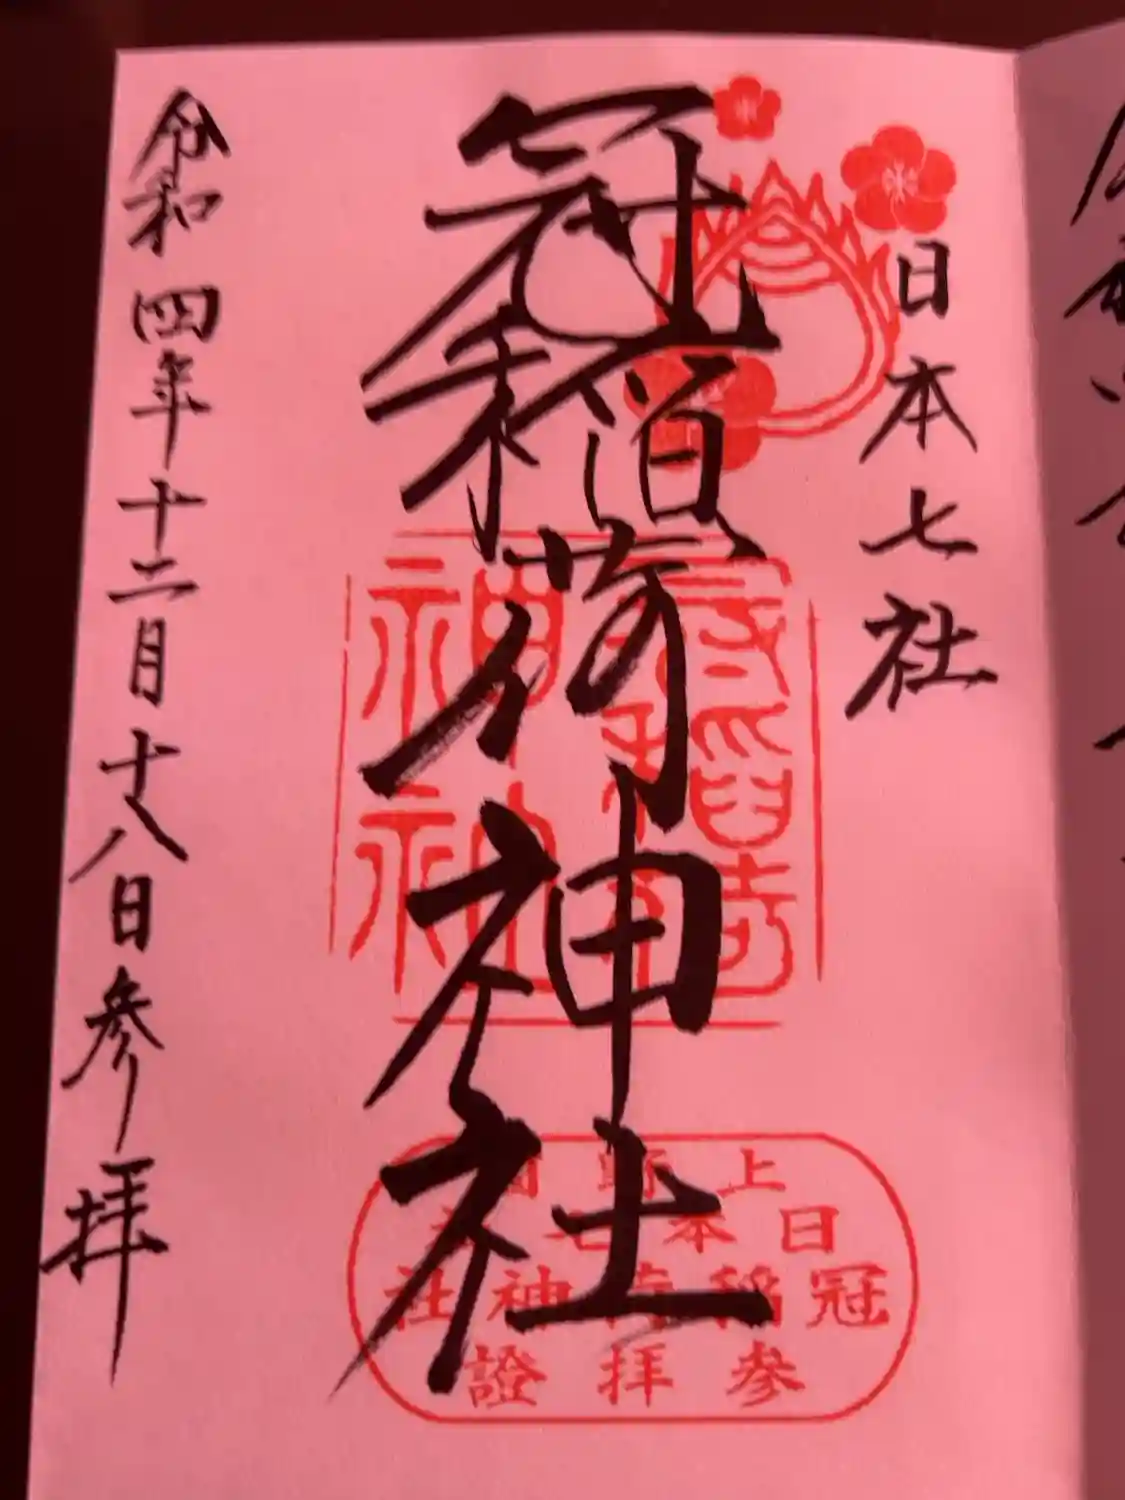 日本七社
冠稲荷神社
令和四年十二月十八日参拝
上野國
日本七社
冠稲荷神社
参拝證